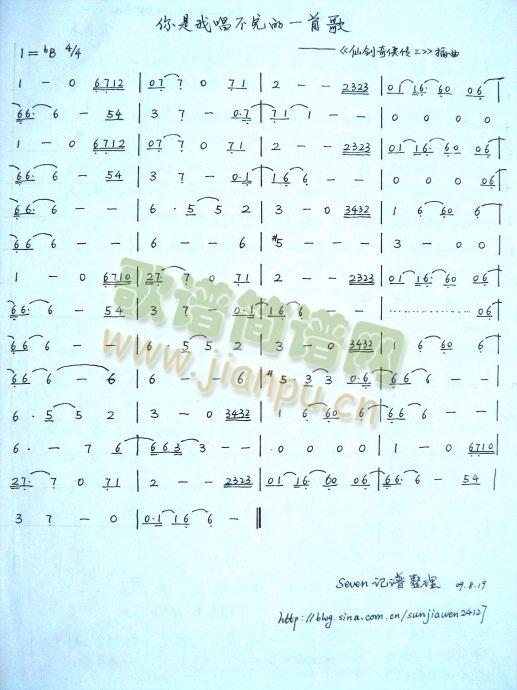 你是我唱不完的一首歌
1=ᵇB 4/4 ——《仙剑奇侠传三》插曲
1 - 0 6712 | 07 7 0 71 | 2 - - 2323 | 01 16· 60 06 |
66· 6 - 54 | 3 7 - 0·7 | 71 1 - - | 0 0 0 0
1 - 0 6712 | 07 7 0 71 | 2 - - 2323 | 01 16· 60 06 |
66· 6 - 54 | 3 7 - 0·1 | 16 6 - - | 0 0 0 06 |
66· 6 - - | 6 · 5 5 2 | 3 - 0 3432 | 1 6 60 6 |
66 6 - - | 6 - - 6 | #5 - - - | 3 - 0 0
1 - 0 6710 | 27· 7 0 71 | 2 - - 2323 | 01 16· 60 06 |
66· 6 - 54 | 3 7 - 0·1 | 16 6 - - | ………… 06 |
66 6 - - | 6 5 5 2 | 3 - 0 3432 | 1 6 60 6 |
66 6 - 6 | 6 - - 6 | #5 · 3 3 0·6 | 66 6 - -
6 · 5 5 2 | 3 - 0 3432 | 1 6 60 6 | 66 6 - -
6 · - 7 6 | 663 3 - - | 0 0 0 0 | 1 - 0 6710
27· 7 0 71 | 2 - - 2323 | 01 16· 60 06 | 66· 6 - 54 |
3 7 - 0 | 0·1 16 6 - ‖
歌谱简谱网
www.jianpu.cn
Seven 记谱整理 09.8.19
http://blog.sina.com.cn/sunjiawen24127